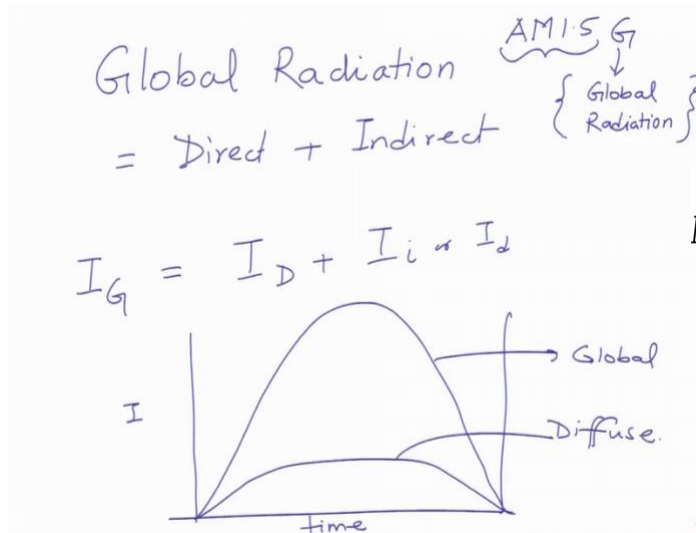 Global Radiation
AM1.5 G
{ Global
Radiation }
= Direct + Indirect
I_G = I_D + I_i or I_d
I
Global
Diffuse.
time